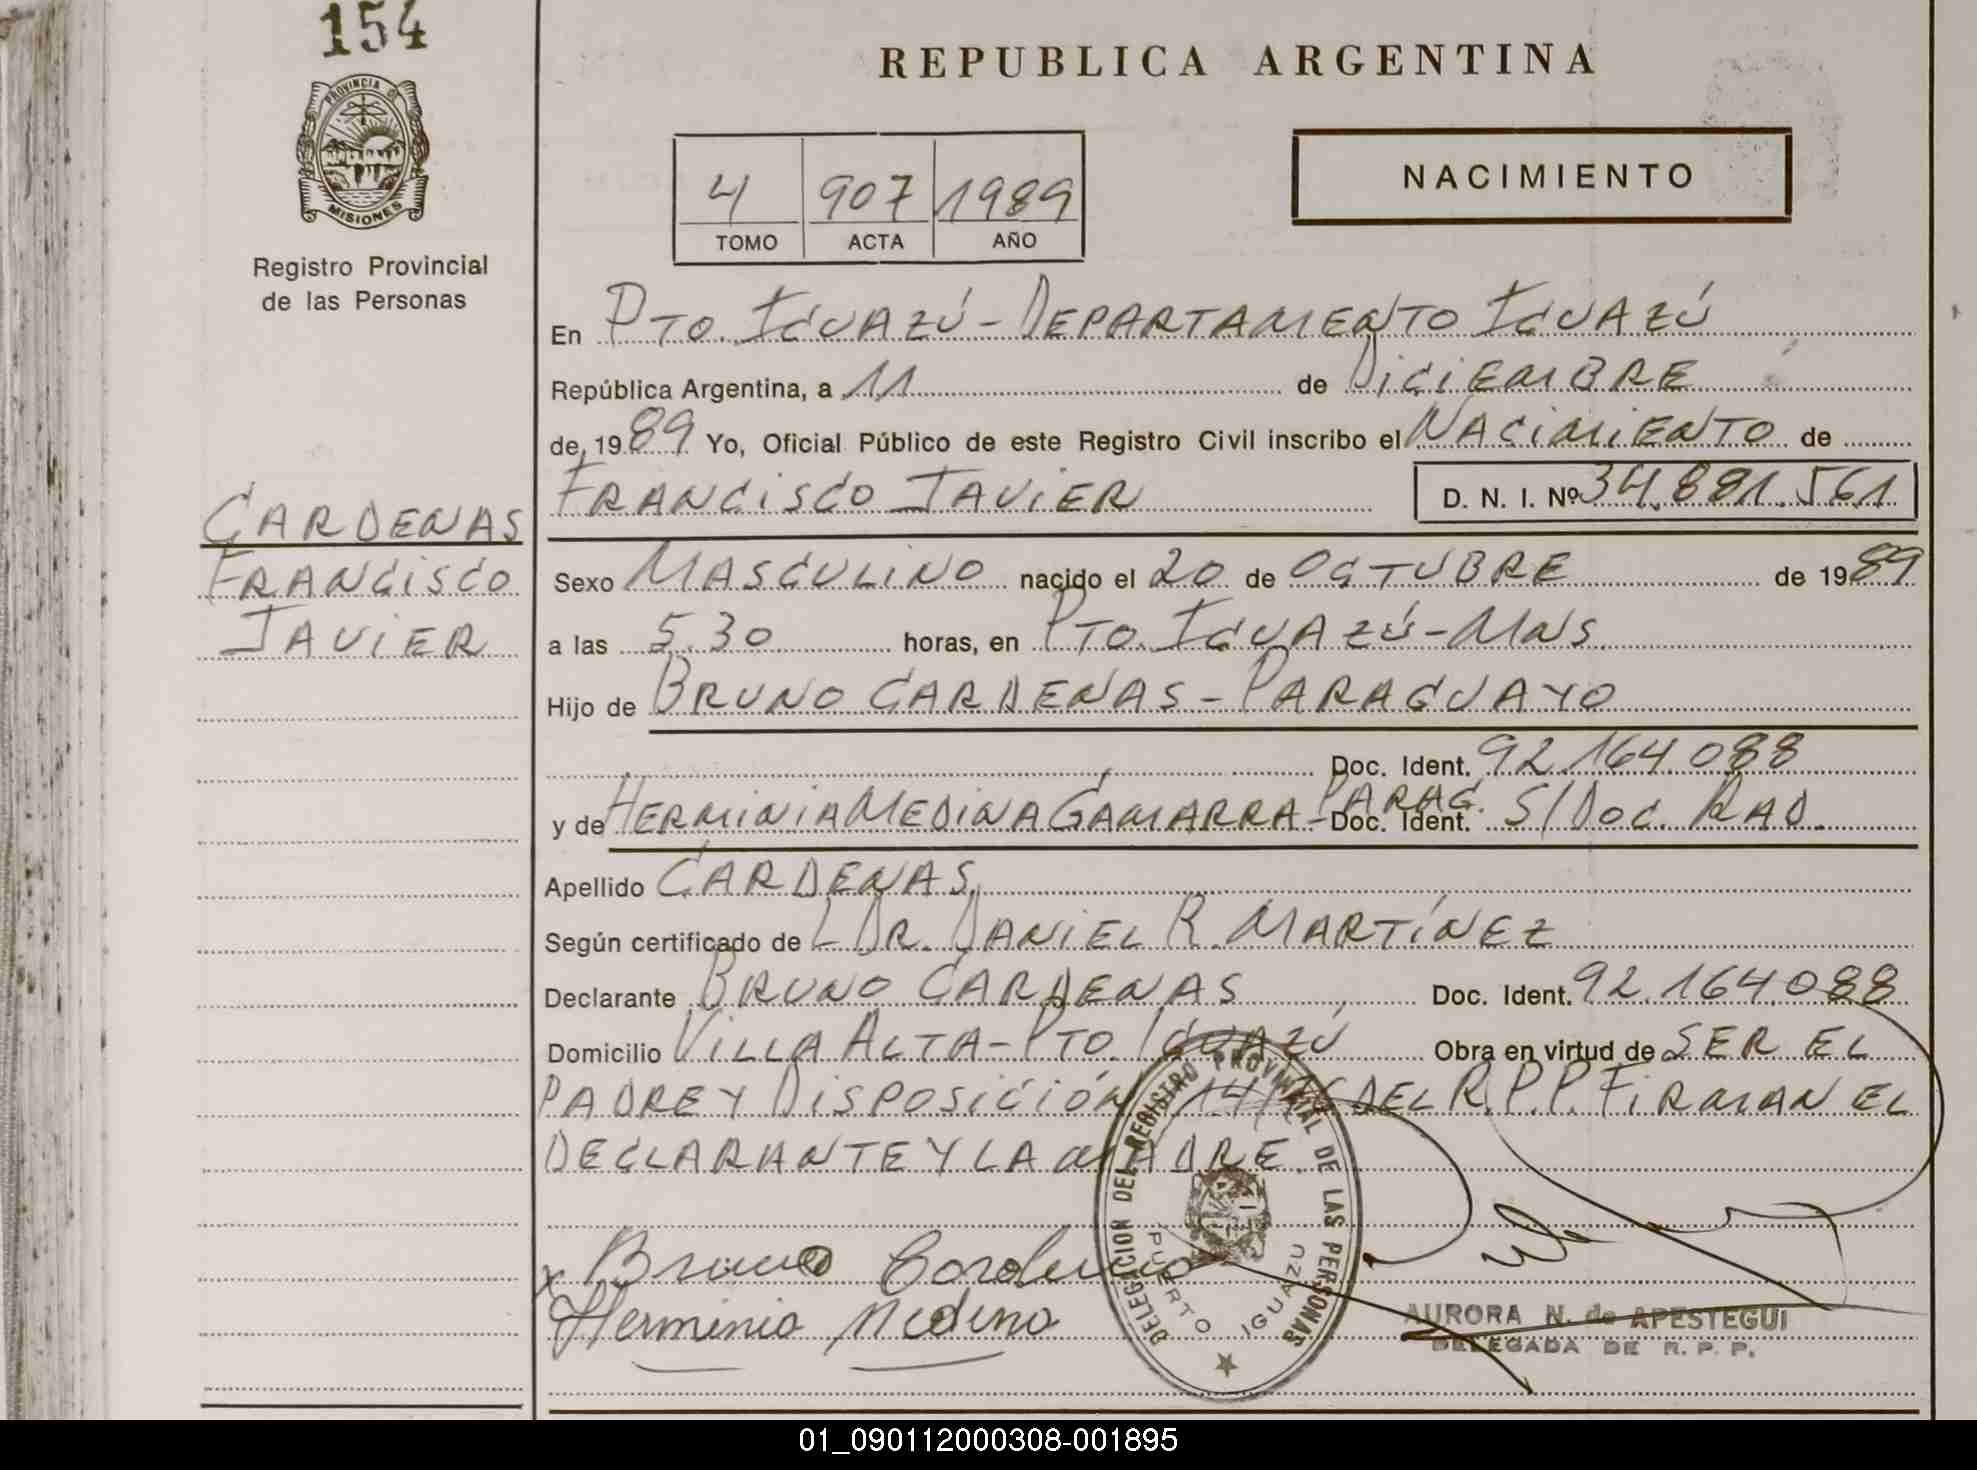 154
PROVINCIA DE
MISIONES
Registro Provincial
de las Personas
REPUBLICA ARGENTINA
4 907 1989
TOMO ACTA AÑO
NACIMIENTO
En PTO. IGUAZÚ - DEPARTAMENTO IGUAZÚ
República Argentina, a 11 de DICIEMBRE
de 1989 Yo, Oficial Público de este Registro Civil inscribo el NACIMIENTO de
FRANCISCO JAVIER D. N. I. Nº 34.891.561
CARDENAS
FRANCISCO
JAVIER
Sexo MASCULINO nacido el 20 de OCTUBRE de 1989
a las 5.30 horas, en PTO. IGUAZÚ - MNS.
Hijo de BRUNO CARDENAS - PARAGUAYO
Doc. Ident. 92.164.088
y de HERMINIA MEDINA GAMARRA - PARAG. Doc. Ident. S/DOC. RAD.
Apellido CARDENAS
Según certificado de L DR. DANIEL R. MARTÍNEZ
Declarante BRUNO CARDENAS Doc. Ident. 92.164.088
Domicilio VILLA ALTA - PTO. IGUAZÚ Obra en virtud de SER EL
PADRE Y DISPOSICIÓN DEL R.P.P. FIRMAN EL
DECLARANTE Y LA MADRE.
x Bruno Cardenas
Herminia Medina
DELEGACION DEL REGISTRO PROVINCIAL DE LAS PERSONAS
PUERTO IGUAZU
AURORA N. de APESTEGUI
DELEGADA DE R. P. P.
01_090112000308-001895